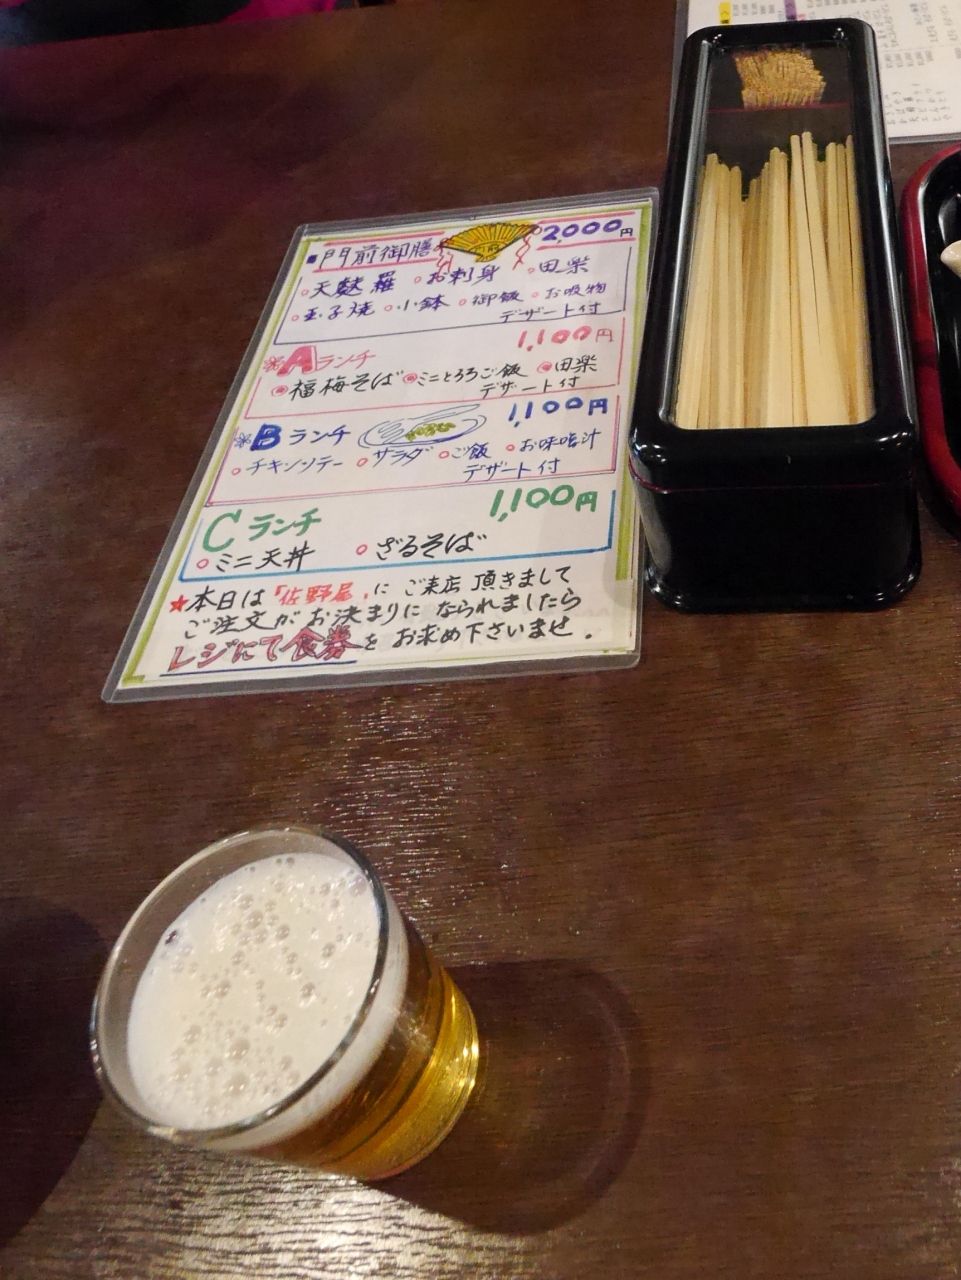 門前御膳 2,000円
天麩羅 お刺身 田楽
玉子焼 小鉢 御飯 お吸物
デザート付
Aランチ 1,100円
福梅そば ミニとろろご飯 田楽
デザート付
Bランチ 1,100円
チキンソテー サラダ ご飯 お味噌汁
デザート付
Cランチ 1,100円
ミニ天丼 ざるそば
★本日は「佐野屋」にご来店頂きまして
ご注文がお決まりになられましたら
レジにて食券をお求め下さいませ.